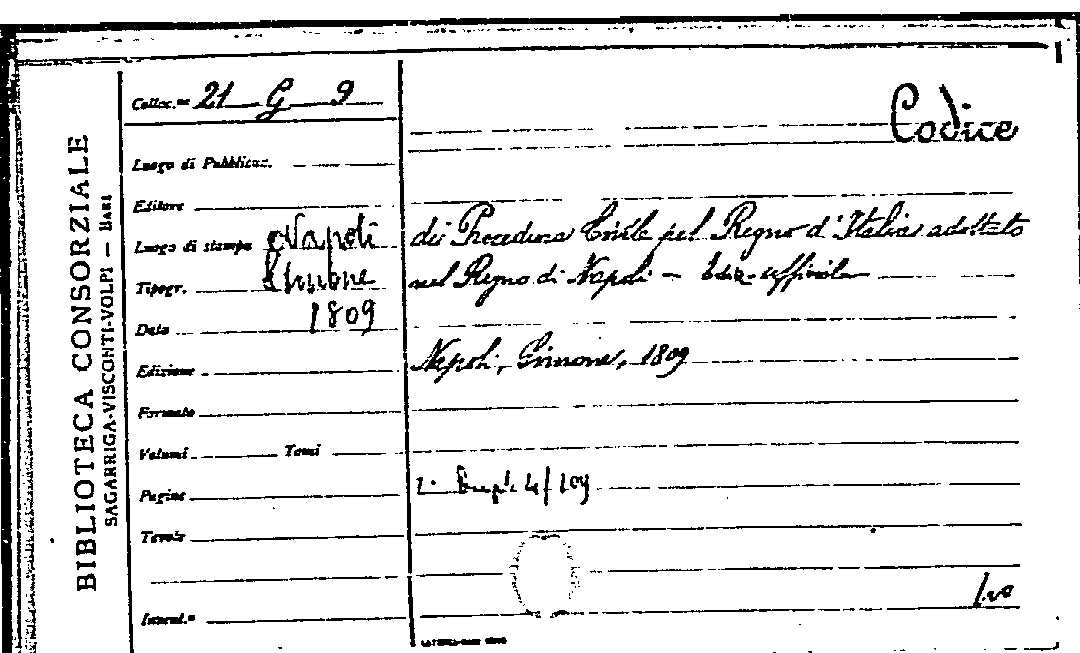 BIBLIOTECA CONSORZIALE
SAGARRIGA-VISCONTI-VOLPI - BARI
Colloc.ne 21 G 9
Luogo di Pubblicaz.
Editore
Luogo di stampa Napoli
Tipogr. Simone
Data 1809
Edizione
Formato
Volumi Tomi
Pagine
Tavole
Invent.o
Codice
di Procedura Civile pel Regno d'Italia adottato
nel Regno di Napoli - Ediz. ufficiale
Napoli, Simone, 1809
4/109